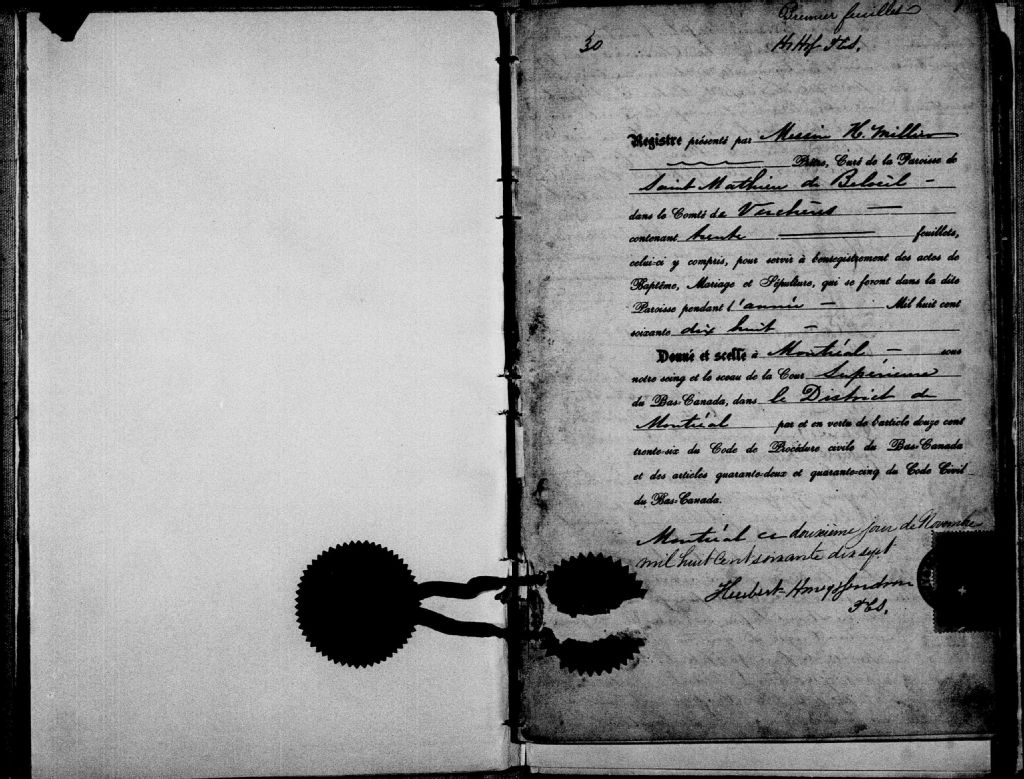 Premier feuillet
30
Registre présenté par Messire H. Millier
Prêtre, Curé de la Paroisse de
Saint Mathieu de Beloeil
dans le Comté de Verchères
contenant trente feuillets,
celui-ci y compris, pour servir à l'enregistrement des actes de
Baptême, Mariage et Sépulture, qui se feront dans la dite
Paroisse pendant l'année Mil huit cent
soixante dix huit
Donné et scellé à Montréal sous
notre seing et le sceau de la Cour Supérieure
du Bas-Canada, dans le District de
Montréal par et en vertu de l'article douze cent
trente-six du Code de Procédure civile du Bas-Canada
et des articles quarante-deux et quarante-cinq du Code Civil
du Bas-Canada.
Montréal ce douzième jour de Novembre
mil huit Cent soixante dix sept